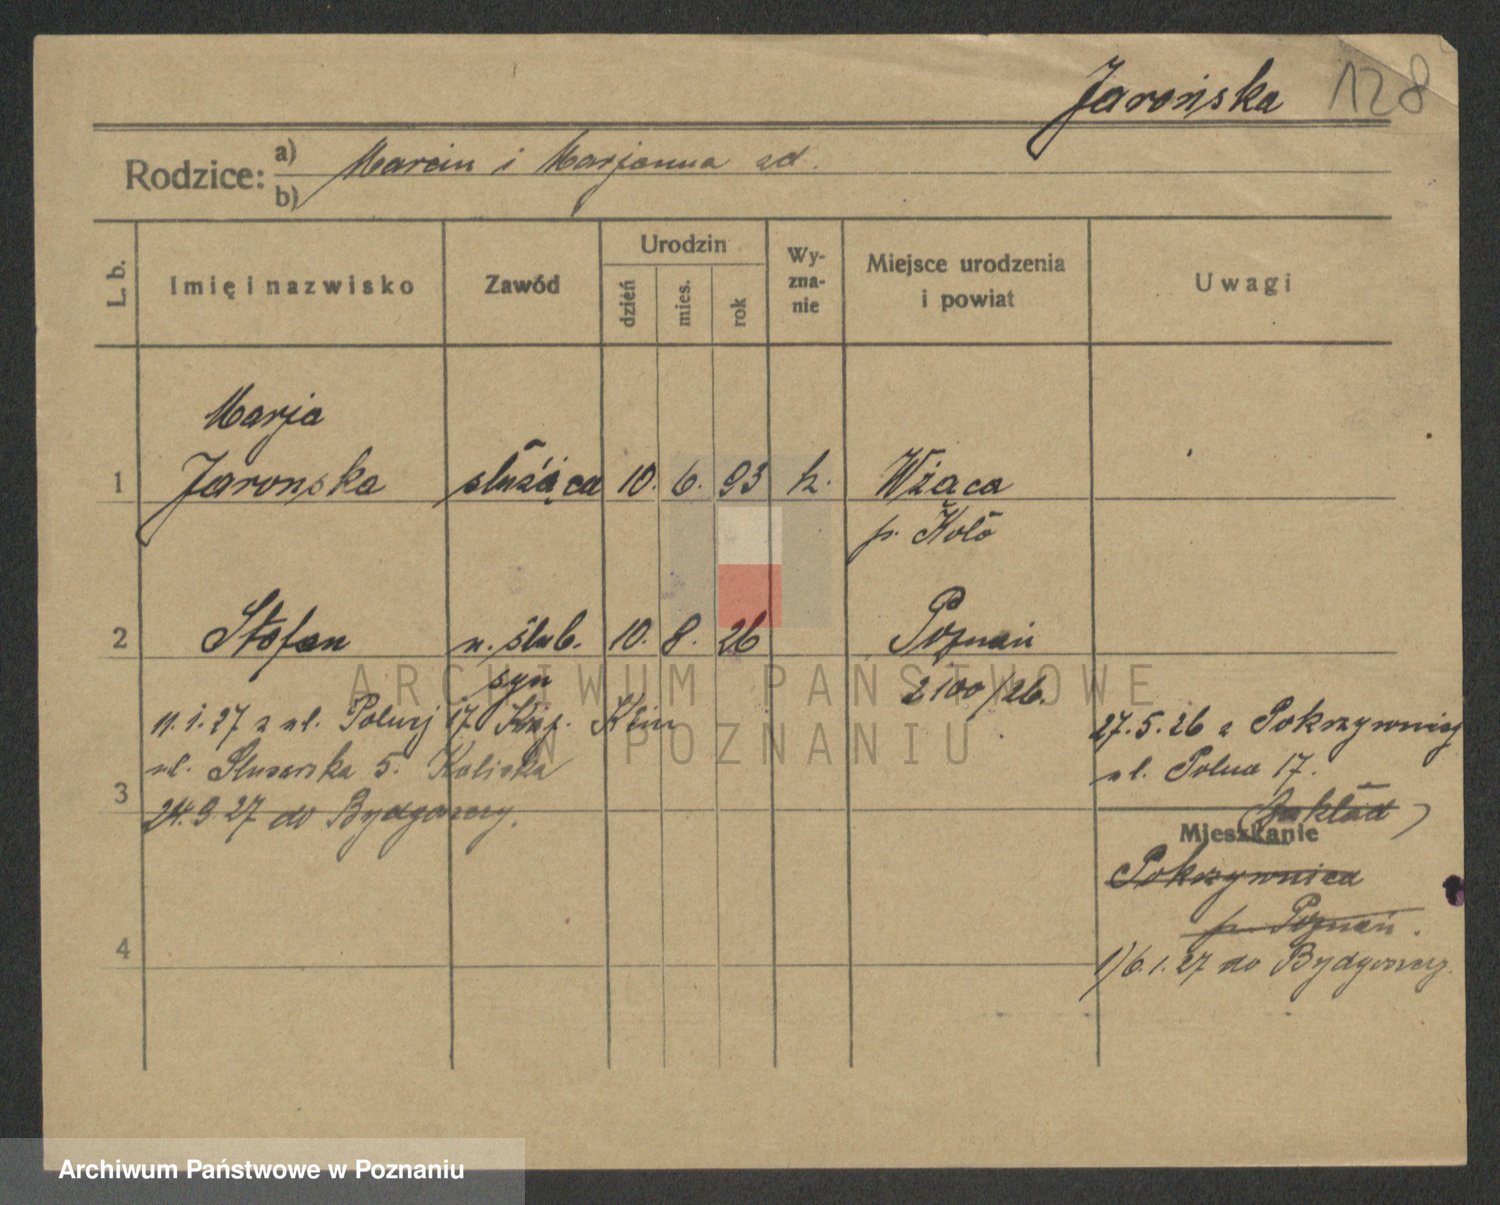 Jarońska 128
Rodzice: a) b) Marcin i Marjanna zd.
L. b. Imię i nazwisko Zawód Urodzin dzień mies. rok Wy-zna-nie Miejsce urodzenia i powiat Uwagi
Marja
1 Jaronska służąca 10. 6. 93 k. Wżąca
p. Koło
2 Stefan n. ślub. 10. 8. 26 Poznań
syn 2100/26.
11.1.27 z ul. Polnej 17 Klin
27.5.26 z Pokrzywnicy
ul. Ślusarska 5.
ul. Polna 17.
3 24.9 27 do Bydgoszczy.
(Zakład)
Mieszkanie
Pokrzywnica
p. Poznań.
4
1) 6.1.27 do Bydgoszczy.
ARCHIWUM PAŃSTWOWE
W POZNANIU
Archiwum Państwowe w Poznaniu